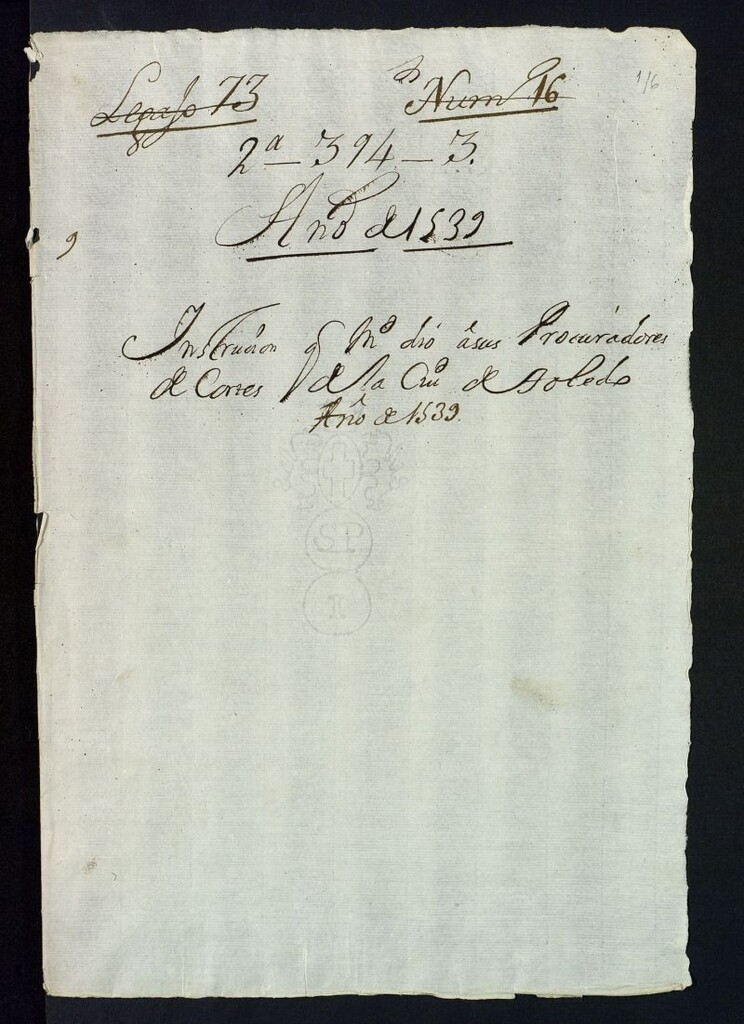 1/6
Legajo 73 Num 16
2ª - 394 - 3.
Año de 1539
9
Instrucion q Md dió â sus Procuradores
de Cortes de la Ciud de Toledo
Año de 1539.
SP
1